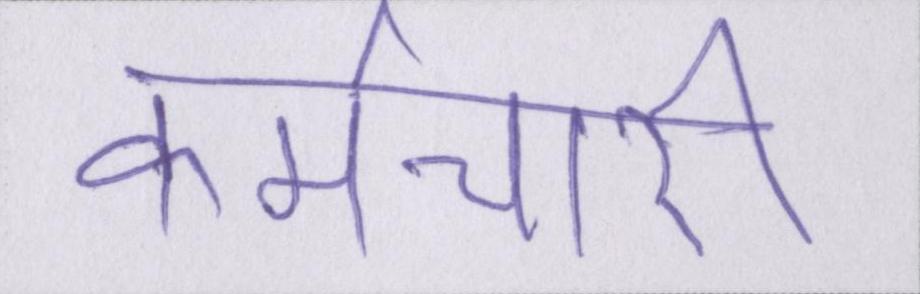 कर्मचारी